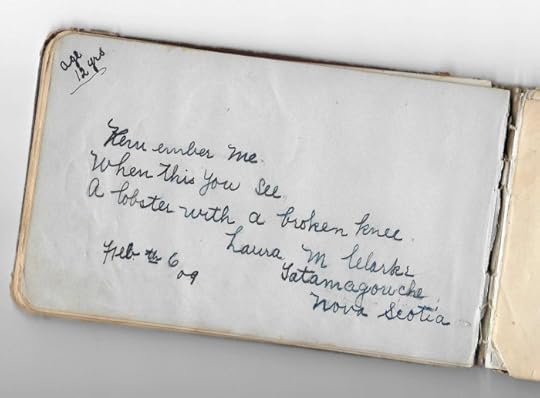 age
12 yrs
Remember me.
When this You See,
A lobster with a broken knee.
Laura M Clarke
Feb th 6
09
Tatamagouche,
Nova Scotia